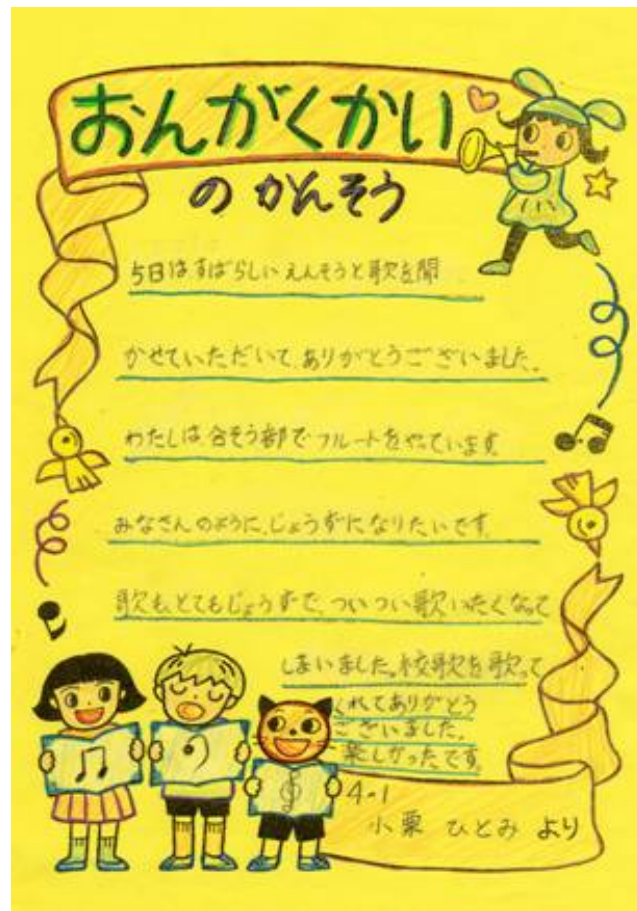 おんがくかい
のかんそう
5日はすばらしいえんそうと歌を聞
かせていただいて、ありがとうございました。
わたしは合そう部でフルートをやっています。
みなさんのように、じょうずになりたいです。
歌も、とてもじょうずで、ついつい歌いたくなって
しまいました。校歌を歌って
くれてありがとう
ございました。
楽しかったです。
4・1
小栗 ひとみ より